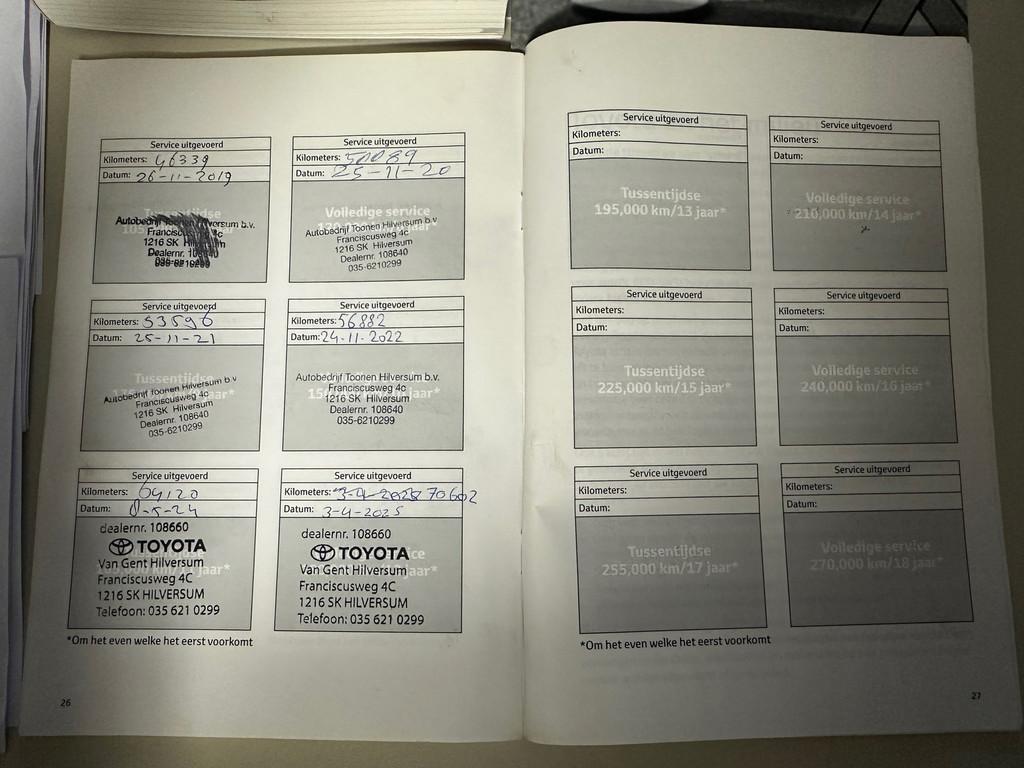 Service uitgevoerd
Kilometers: 46339
Datum: 26-11-2019
Tussentijdse
Autobedrijf Toonen Hilversum b.v.
Franciscusweg 4c
1216 SK Hilversum
Dealernr. 108640
035-6210299
Service uitgevoerd
Kilometers: 50089
Datum: 25-11-20
Volledige service
Autobedrijf Toonen Hilversum b.v.
Franciscusweg 4c
1216 SK Hilversum
Dealernr. 108640
035-6210299
Service uitgevoerd
Kilometers: 53596
Datum: 25-11-21
Tussentijdse
Autobedrijf Toonen Hilversum b.v
Franciscusweg 4c
1216 SK Hilversum
Dealernr. 108640
035-6210299
Service uitgevoerd
Kilometers: 56882
Datum: 24-11-2022
Autobedrijf Toonen Hilversum b.v.
Franciscusweg 4c
1216 SK Hilversum
Dealernr. 108640
035-6210299
Service uitgevoerd
Kilometers: 64120
Datum:
dealernr. 108660
TOYOTA
Van Gent Hilversum
Franciscusweg 4C
1216 SK HILVERSUM
Telefoon: 035 621 0299
Service uitgevoerd
Kilometers: 70602
Datum: 3-4-2025
dealernr. 108660
TOYOTA
Van Gent Hilversum
Franciscusweg 4C
1216 SK HILVERSUM
Telefoon: 035 621 0299
*Om het even welke het eerst voorkomt
26
Service uitgevoerd
Kilometers:
Datum:
Tussentijdse
195,000 km/13 jaar*
Service uitgevoerd
Kilometers:
Datum:
Volledige service
210,000 km/14 jaar*
Service uitgevoerd
Kilometers:
Datum:
Tussentijdse
225,000 km/15 jaar*
Service uitgevoerd
Kilometers:
Datum:
Volledige service
240,000 km/16 jaar*
Service uitgevoerd
Kilometers:
Datum:
Tussentijdse
255,000 km/17 jaar*
Service uitgevoerd
Kilometers:
Datum:
Volledige service
270,000 km/18 jaar*
*Om het even welke het eerst voorkomt
27